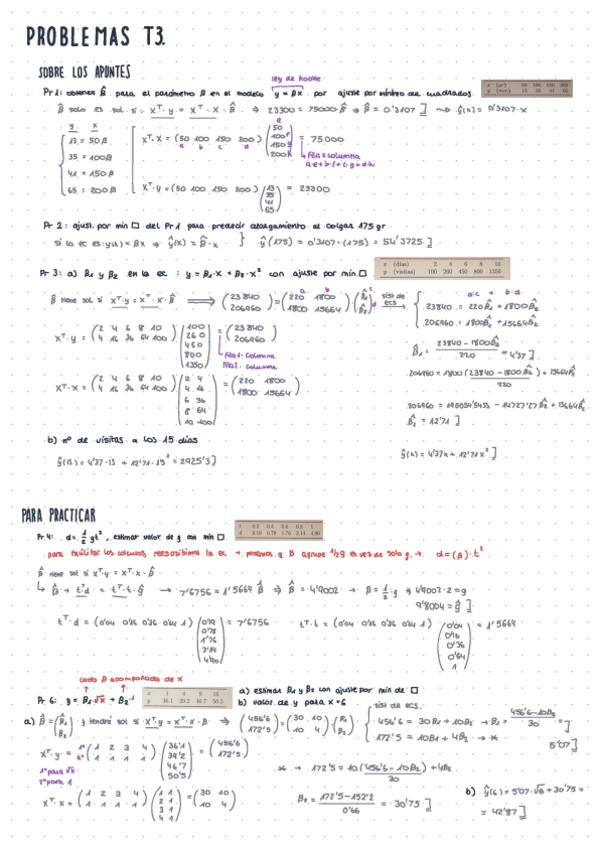 PROBLEMAS T3.
SOBRE LOS APUNTES
ley de hooke
Pr 1: obtener β̂ para el parámetro β en el modelo y = βx por ajuste por mínimo de cuadrados.
β̂ solo es sol. si: Xᵀ·y = Xᵀ·X·β̂ ⇒ 23300 = 75000 β̂ ⇒ β̂ = 0'3107 ] → ŷ(x) = 0'3107·x
y x
13 = 50β
35 = 100β
41 = 150β
65 = 200β
Xᵀ·X = (50 100 150 200) (50 100 150 200) = 75000
a b c d
fila x columna
a·e+b·f+c·g+d·h
Xᵀ·y = (50 100 150 200) (13 35 41 65) = 23300
Pr 2: ajust. por min □ del Pr 1 para predecir alargamiento al colgar 175 gr.
si la ec es: y(x) = βx ⇒ ŷ(x) = β̂·x } ŷ(175) = 0'3107·(175) = 54'3725 ]
Pr 3: a) β₁ y β₂ en la ec: y = β₁·x + β₂·x² con ajuste por min □
x (días) 2 4 6 8 10
y (visitas) 100 260 450 800 1350
β̂ tiene sol si Xᵀ·y = Xᵀ·X·β̂ ⟹ (23840 206960) = (220 1800 1800 15664)·(β̂₁ β̂₂) sist de ecs
23840 = 220β̂₁ + 1800β̂₂
206960 = 1800β̂₁ + 15664β̂₂
Xᵀ·y = (2 4 6 8 10 4 16 36 64 100) (100 260 450 800 1350) = (23840 206960)
fila 1 · columna
fila 2 · columna
β̂₁ = 23840 - 1800β̂₂ / 220 = 4'37 ]
206960 = 1800 (23840 - 1800β̂₂) / 220 + 15664β̂₂
Xᵀ·X = (2 4 6 8 10 4 16 36 64 100) (2 4 4 16 6 36 8 64 10 100) = (220 1800 1800 15664)
β̂₂ = 12'71 ]
b) nº de visitas a los 15 días
ŷ(15) = 4'37·15 + 12'71·15² = 2925'3 ]
ŷ(x) = 4'37x + 12'71x² ]
PARA PRACTICAR
Pr 4: d = ½ gt², estimar valor de g con min □.
t 0.2 0.4 0.6 0.8 1
d 0.19 0.78 1.76 3.14 4.90
para facilitar los cálculos reescribimos la ec → ponemos q β agrupe 1/2g en vez de solo g. → d = (β)·t²
β̂ tiene sol si Xᵀ·y = Xᵀ·X·β̂
→ 7'6756 = 1'5664 β̂ ⇒ β̂ = 4'9002 → β = ½·g ⇒ 4'9002·2 = g
9'8004 = ĝ ]
tᵀ·d = (0'04 0'16 0'36 0'64 1) = 7'6756
tᵀ·t = (0'04 0'16 0'36 0'64 1) (0'04 0'16 0'36 0'64 1) = 1'5664
cada β acompañada de x
Pr 6: y = β₁·√x + β₂·1
x 1 4 9 16
y 36.1 39.2 46.7 50.5
a) estimar β₁ y β₂ con ajuste por min de □
b) valor de y para x = 6
sist de ecs.
a) β̂ = (β̂₁ β̂₂) y tendrá sol si Xᵀ·y = Xᵀ·X·β ⇒ (456'6 172'5) = (30 10 10 4)·(β₁ β₂)
456'6 = 30β₁ + 10β₂ → β₁ = 456'6-10β₂ / 30 = 5'07 ]
172'5 = 10β₁ + 4β₂ → *
Xᵀ·y = (1 2 3 4 1 1 1 1) (36'1 39'2 46'7 50'5) = (456'6 172'5)
1º para √x
2º para 1
* → 172'5 = 10 (456'6 - 10β₂) / 30 + 4β₂
Xᵀ·X = (1 2 3 4 1 1 1 1) (1 1 2 1 3 1 4 1) = (30 10 10 4)
β₂ = 172'5 - 152'2 / 0'66 = 30'75 ]
b) ŷ(6) = 5'07·√6 + 30'75 =
= 42'87 ]